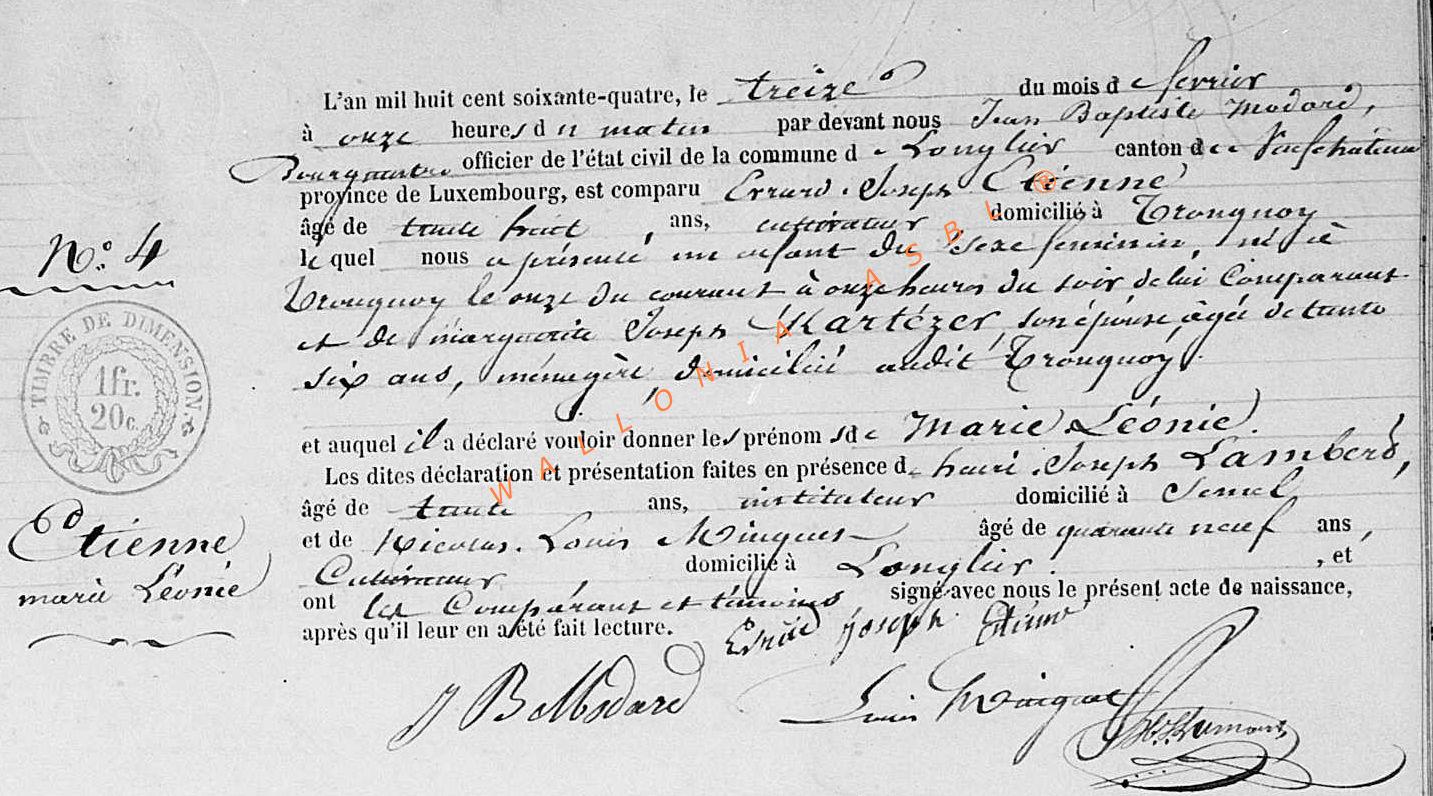 L'an mil huit cent soixante-quatre, le treize du mois de fevrier
à onze heures du matin par devant nous Jean Baptiste Modard,
Bourgmestre officier de l'état civil de la commune de Longlier canton de Neufchâteau
province de Luxembourg, est comparu Errard Joseph Etienne
âgé de trente huit ans, cultivateur domicilié à Tronquoy
le quel nous a présenté un enfant du sexe feminin, né à
N° 4
Tronquoy le onze du courant à onze heures du soir de lui Comparant
et de marguerite Joseph Kartézer, son épouse, âgée de trente
six ans, ménagère, domicilié audit Tronquoy.
TIMBRE DE DIMENSION
1fr.
20c.
et auquel il a déclaré vouloir donner les prénoms de Marie Léonie.
Les dites déclaration et présentation faites en présence de henri Joseph Lambert,
âgé de trente ans, instituteur domicilié à Semel
et de Nicolas Louis Minguet âgé de quarante neuf ans,
Cultivateur, domicilié à Longlier, et
Etienne
marie Léonie
ont les Comparant et témoins signé avec nous le présent acte de naissance,
après qu'il leur en a été fait lecture.
Joseph Etienne
J B Modard
Louis Minguet
WALLONIA ASBL ®